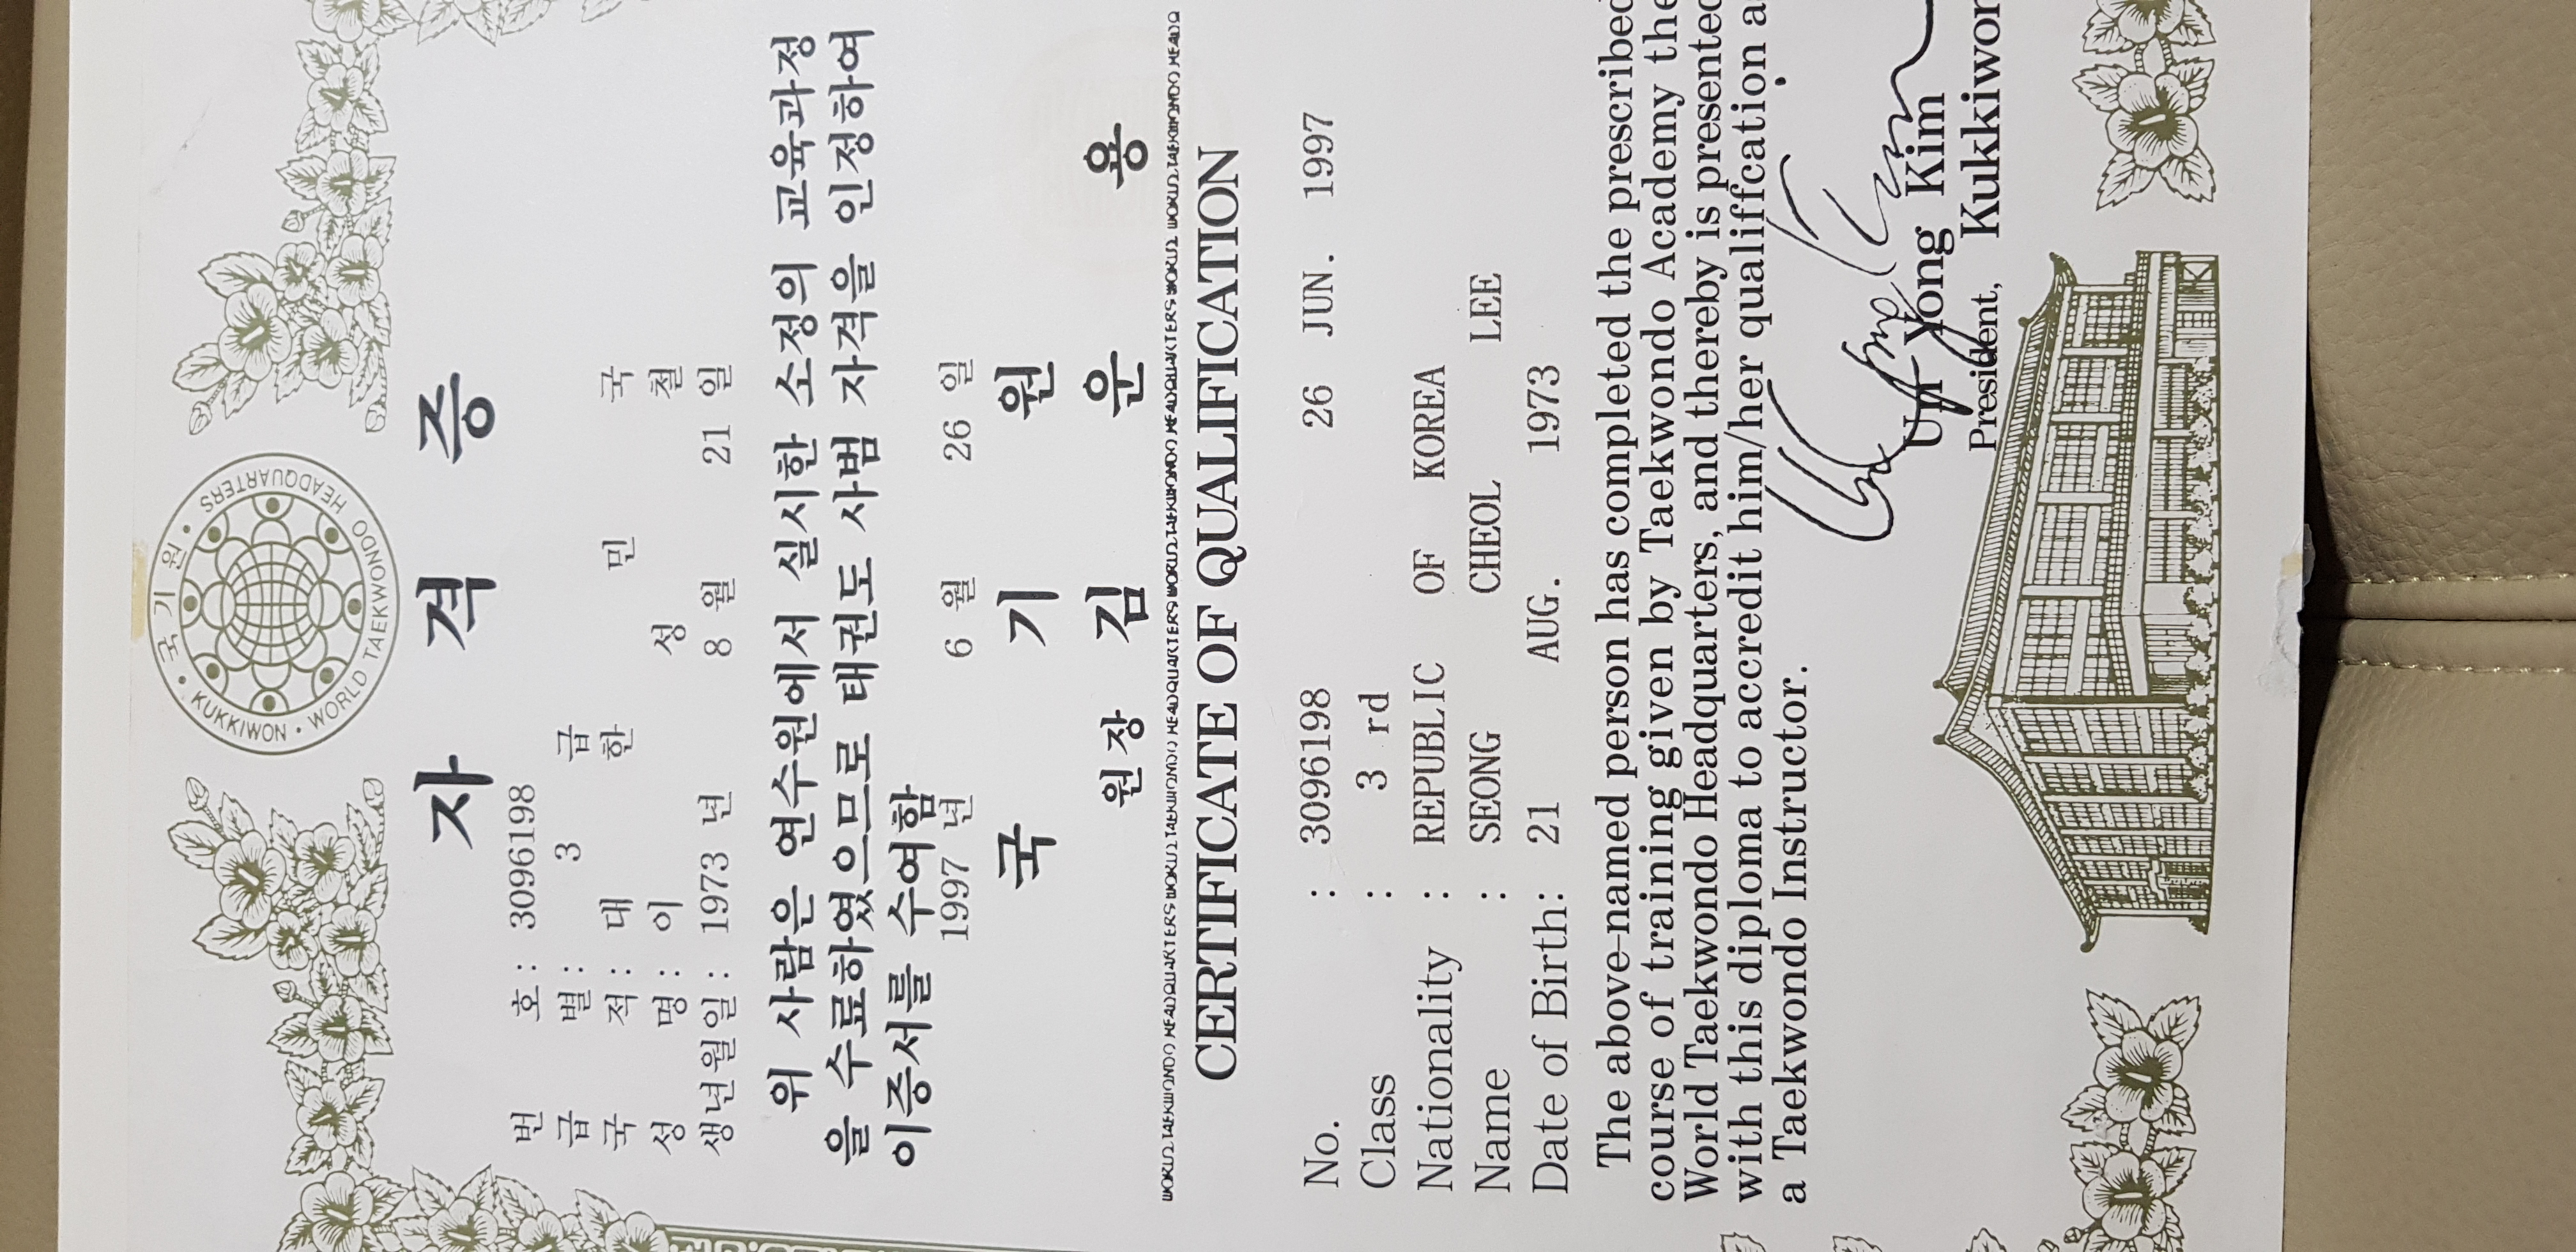 국기원
KUKKIWON · WORLD TAEKWONDO HEADQUARTERS
자 격 증
번 호 : 3096198
급 별 : 3 급
국 적 : 대 한 민 국
성 명 : 이 성 철
생년월일 : 1973 년 8 월 21 일
위 사람은 연수원에서 실시한 소정의 교육과정
을 수료하였으므로 태권도 사범 자격을 인정하여
이증서를 수여함
1997 년 6 월 26 일
국 기 원
원장 김 운 용
CERTIFICATE OF QUALIFICATION
No. : 3096198 26 JUN. 1997
Class : 3 rd
Nationality : REPUBLIC OF KOREA
Name : SEONG CHEOL LEE
Date of Birth: 21 AUG. 1973
The above-named person has completed the prescribed
course of training given by Taekwondo Academy the
World Taekwondo Headquarters, and thereby is presented
with this diploma to accredit him/her qualiffcation a
a Taekwondo Instructor.
Un Yong Kim
President, Kukkiwon